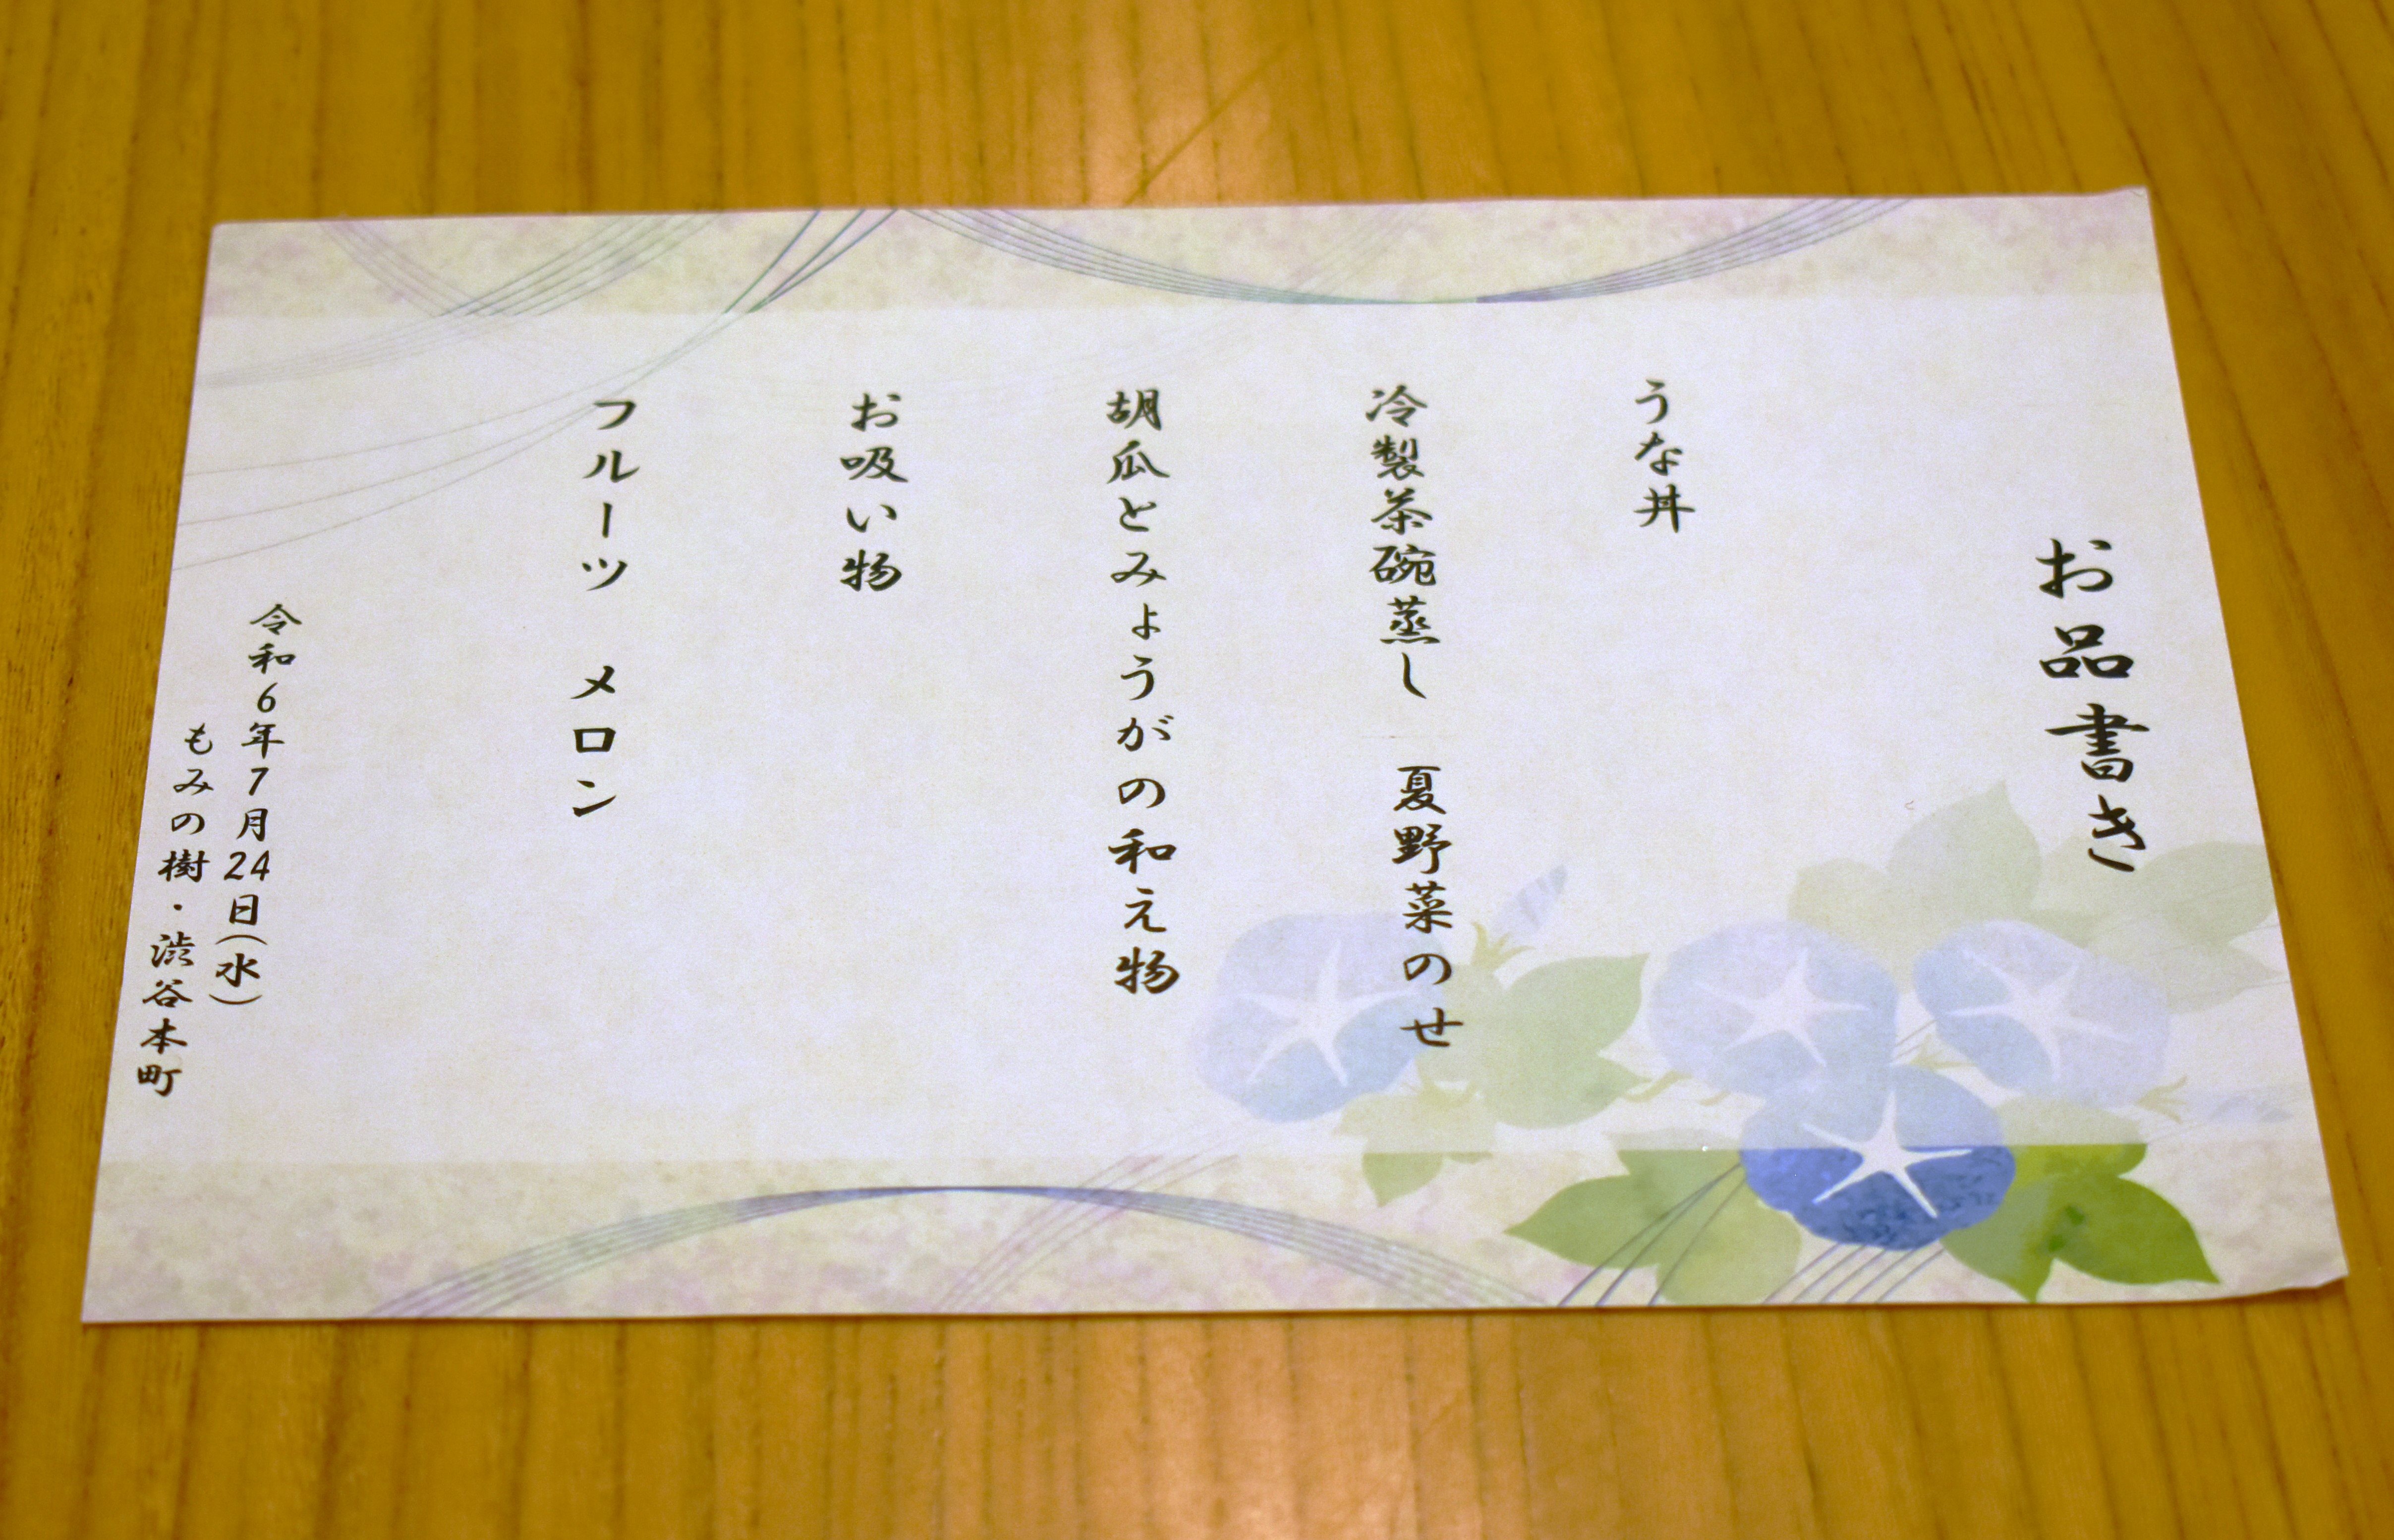 お品書き
うな丼
冷製茶碗蒸し　夏野菜のせ
胡瓜とみょうがの和え物
お吸い物
フルーツ　メロン
令和6年7月24日(水)
もみの樹・渋谷本町